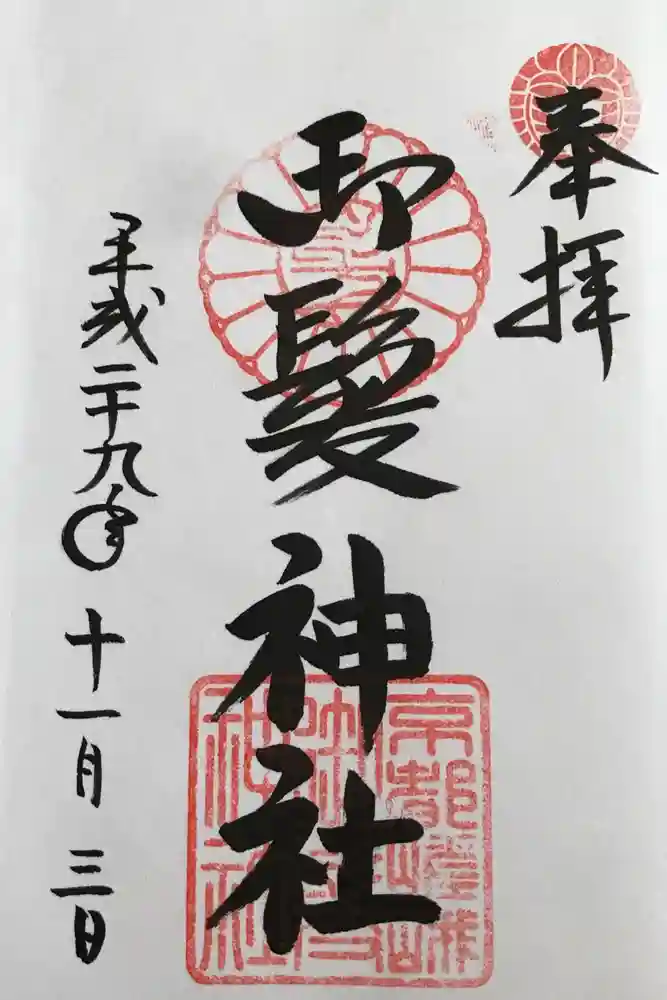 奉拝
御髪神社
平成二十九年十一月三日
京都嵯峨